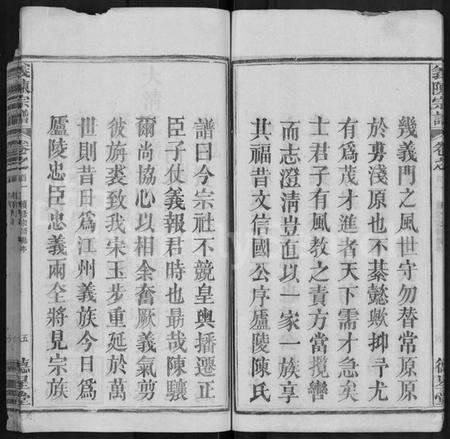 義陳宗譜
幾義門之風世守勿替常原原
於弗淺原也不綦懿歟抑予尤
有為茂才進者天下需才急矣
士君子有風教之責方當攬轡
而志澄清豈直以一家一族享
其福昔文信國公序廬陵陳氏
譜曰今宗社不競皇輿播遷正
臣子仗義報君時也最哉陳驤
爾尚協心以相余奮厥義氣剪
彼旃裘致我宋玉步重延於萬
世則昔日為江州義族今日為
廬陵忠臣忠義兩全將見宗族
義陳宗譜
五
德星堂